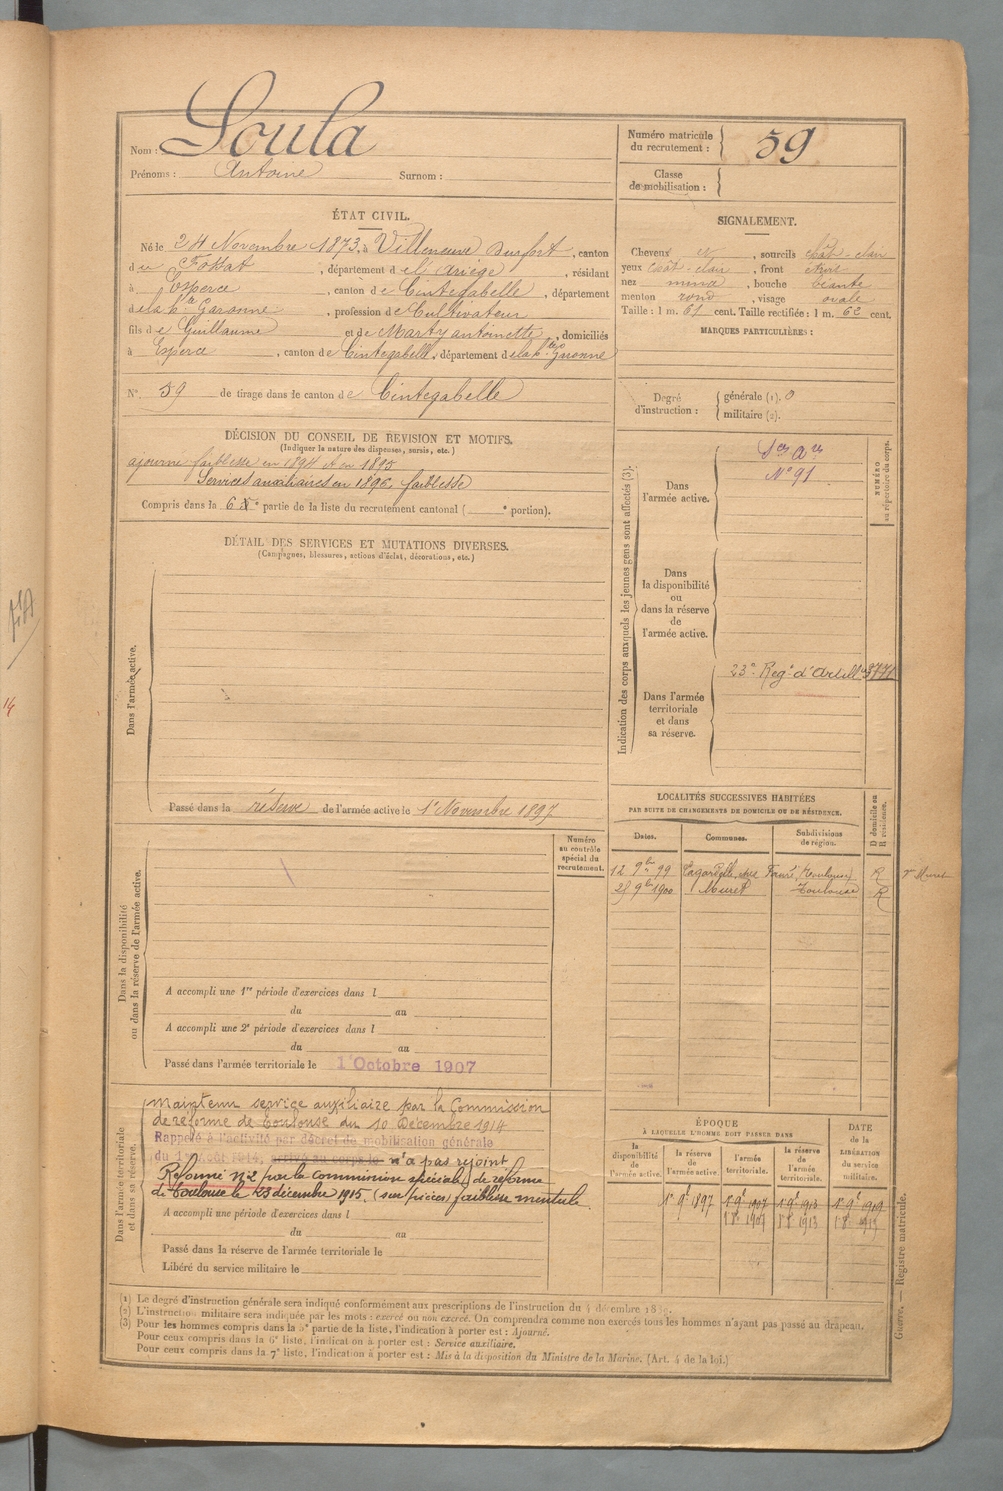 Nom : Soula
Prénoms : Antoine Surnom :
Numéro matricule du recrutement : 59
Classe de mobilisation :
ÉTAT CIVIL.
Né le 24 Novembre 1873, à Villeneuve Durfort, canton
du Fossat, département de l'Ariège, résidant
à Esperce, canton de Cintegabelle, département
de la hte Garonne, profession de Cultivateur
fils de Guillaume et de Marty antoinette, domiciliés
à Esperce, canton de Cintegabelle, département de la hte Garonne
N° 59 de tirage dans le canton de Cintegabelle
SIGNALEMENT.
Cheveux et, sourcils chât-clair
yeux chât-clair, front étroit
nez mince, bouche béante
menton rond, visage ovale
Taille : 1 m. 61 cent. Taille rectifiée : 1 m. 62 cent.
MARQUES PARTICULIÈRES :
Degré d'instruction : générale (1). 0
militaire (2).
DÉCISION DU CONSEIL DE REVISION ET MOTIFS.
(Indiquer la nature des dispenses, sursis, etc.)
ajourné faiblesse en 1894 et en 1895
Services auxiliaires en 1896, faiblesse
Compris dans la 6e partie de la liste du recrutement cantonal ( e portion).
DÉTAIL DES SERVICES ET MUTATIONS DIVERSES.
(Campagnes, blessures, actions d'éclat, décorations, etc.)
Dans l'armée active.
Passé dans la réserve de l'armée active le 1er Novembre 1897
Indication des corps auxquels les jeunes gens sont affectés (3).
NUMÉRO au répertoire du corps.
Dans l'armée active.
Sces Ares
N° 91
Dans la disponibilité ou dans la réserve de l'armée active.
Dans l'armée territoriale et dans sa réserve.
23e Regt d'Artillie
LOCALITÉS SUCCESSIVES HABITÉES
PAR SUITE DE CHANGEMENTS DE DOMICILE OU DE RÉSIDENCE.
Dates. Communes. Subdivisions de région. D domicile ou R résidence.
12 9bre 99 Lagardelle, Toulouse R
25 9bre 1900 Muret Toulouse R
Dans la disponibilité ou dans la réserve de l'armée active.
Numéro au contrôle spécial du recrutement.
A accompli une 1re période d'exercices dans l
du au
A accompli une 2e période d'exercices dans l
du au
Passé dans l'armée territoriale le 1er Octobre 1907
Dans l'armée territoriale et dans sa réserve.
Maintenu service auxiliaire par la Commission
de réforme de Toulouse du 10 Décembre 1914
Rappelé à l'activité par décret de mobilisation générale
du 1er Août 1914, arrivé au corps le n'a pas rejoint
Réformé n°2 par la commission spéciale de réforme
de Toulouse le 23 décembre 1915. (sur pièces) faiblesse mentale.
A accompli une période d'exercices dans l
du au
Passé dans la réserve de l'armée territoriale le
Libéré du service militaire le
ÉPOQUE
À LAQUELLE L'HOMME DOIT PASSER DANS
la disponibilité de l'armée active. la réserve de l'armée active. l'armée territoriale. la réserve de l'armée territoriale. DATE de la LIBÉRATION du service militaire.
1er 9bre 1897 1er 9bre 1907 1er 9bre 1913 1er 9bre 1919
1 8bre 1907 1 8bre 1913
Guerre. — Registre matricule.
(1) Le degré d'instruction générale sera indiqué conformément aux prescriptions de l'instruction du 4 décembre 1889.
(2) L'instruction militaire sera indiquée par les mots : exercé ou non exercé. On comprendra comme non exercés tous les hommes n'ayant pas passé au drapeau.
(3) Pour les hommes compris dans la 5e partie de la liste, l'indication à porter est : Ajourné.
Pour ceux compris dans la 6e liste, l'indication à porter est : Service auxiliaire.
Pour ceux compris dans la 7e liste, l'indication à porter est : Mis à la disposition du Ministre de la Marine. (Art. 4 de la loi.)